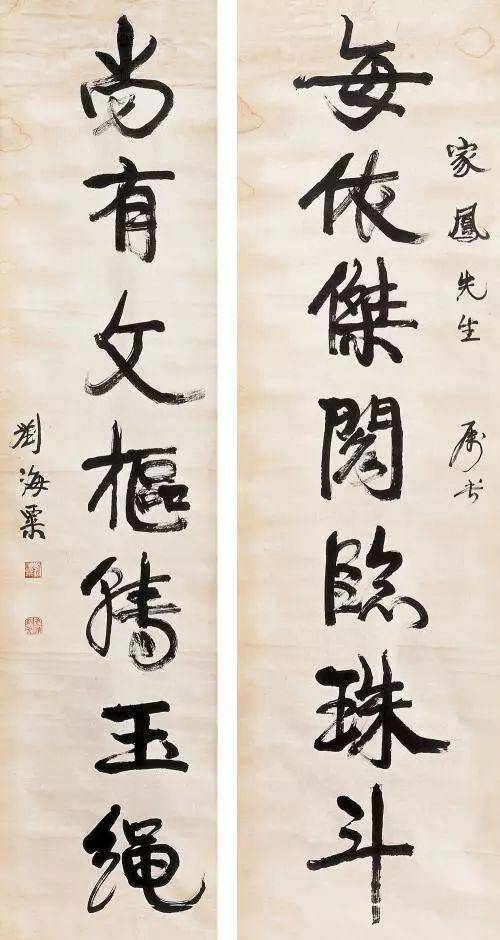 家鳳先生 属书
每依傑閣臨珠斗
尚有文樞轉玉绳
劉海粟